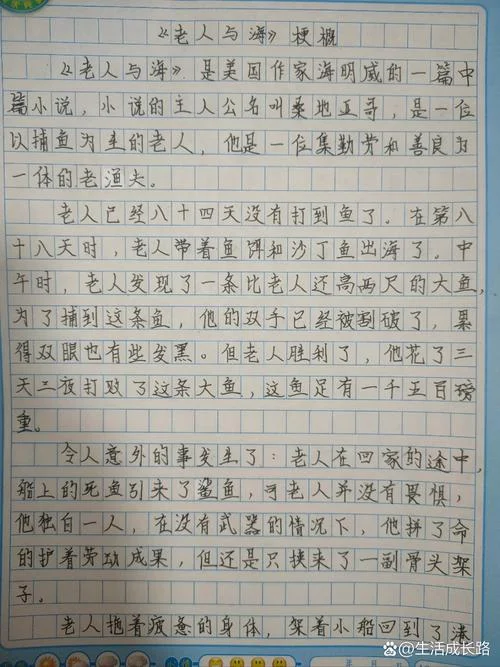 《老人与海》梗概
《老人与海》是美国作家海明威的一篇中
篇小说，小说的主人公名叫桑地亚哥，是一位
以捕鱼为生的老人，他是一位集勤劳和善良为
一体的老渔夫。
老人已经八十四天没有打到鱼了。在第八
十八天时，老人带着鱼饵和沙丁鱼出海了。中
午时，老人发现了一条比老人还高两尺的大鱼，
为了捕到这条鱼，他的双手已经被割破了，累
得双眼也有些发黑。但老人胜利了，他花了三
天三夜打败了这条大鱼，这鱼足有一千五百磅
重。
令人意外的事发生了：老人在回家的途中，
船上的死鱼引来了鲨鱼，可老人并没有畏惧，
他独自一人，在没有武器的情况下，他拼了命
的护着劳动成果，但还是只换来了一副骨头架
子。
老人拖着疲惫的身体，架着小船回到了港
@生活成长路